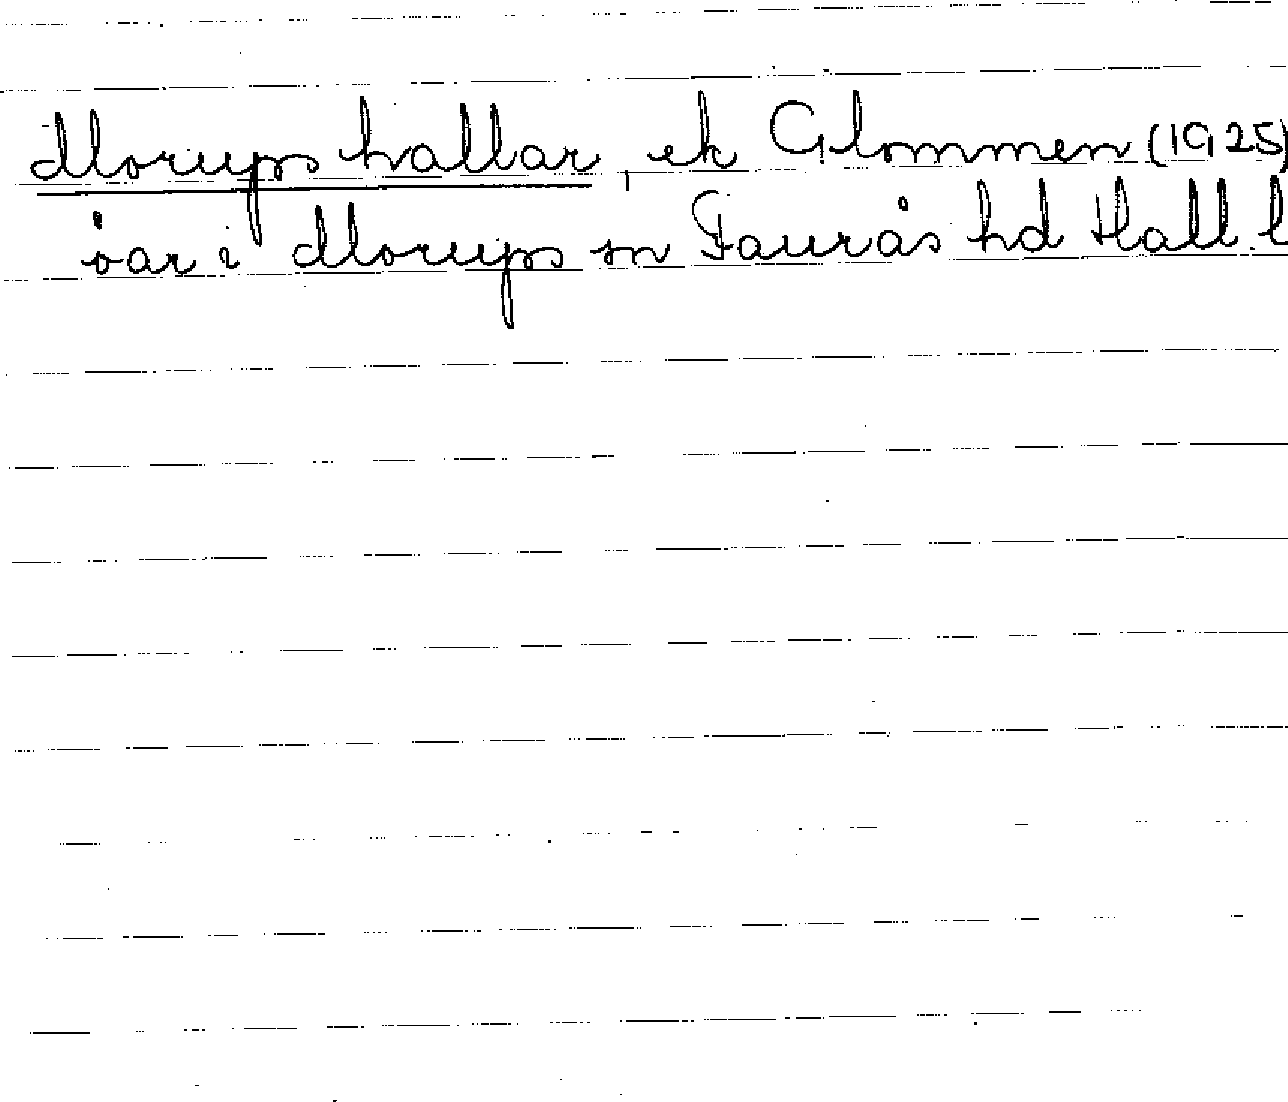 Morups hallar, ek Glommen (1925)
öar i Morups sn Faurås hd Hall. l